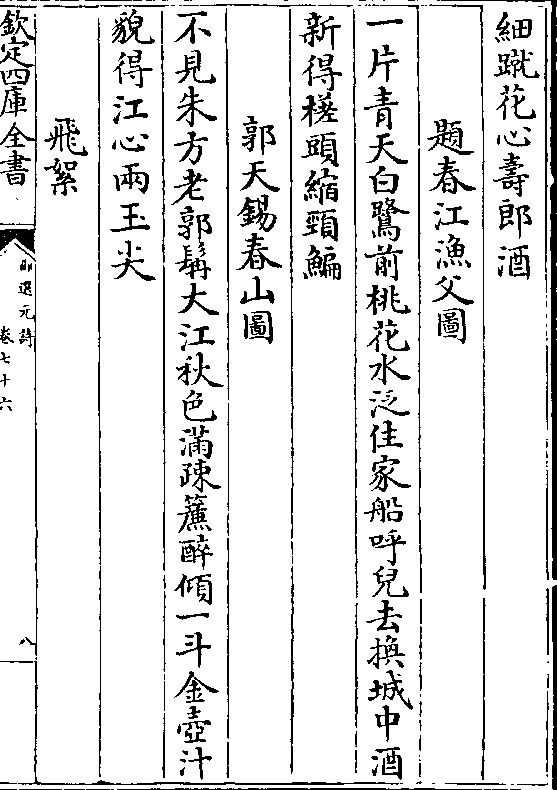 細蹴花心壽郎酒
題春江漁父圖
一片青天白鷺前桃花水泛住家船呼兒去換城中酒
新得槎頭縮頸鯿
郭天錫春山圖
不見朱方老郭髯大江秋色滿疎簾醉傾一斗金壺汁
貌得江心兩玉尖
飛絮
欽定四庫全書
御選元詩
卷七十六
八